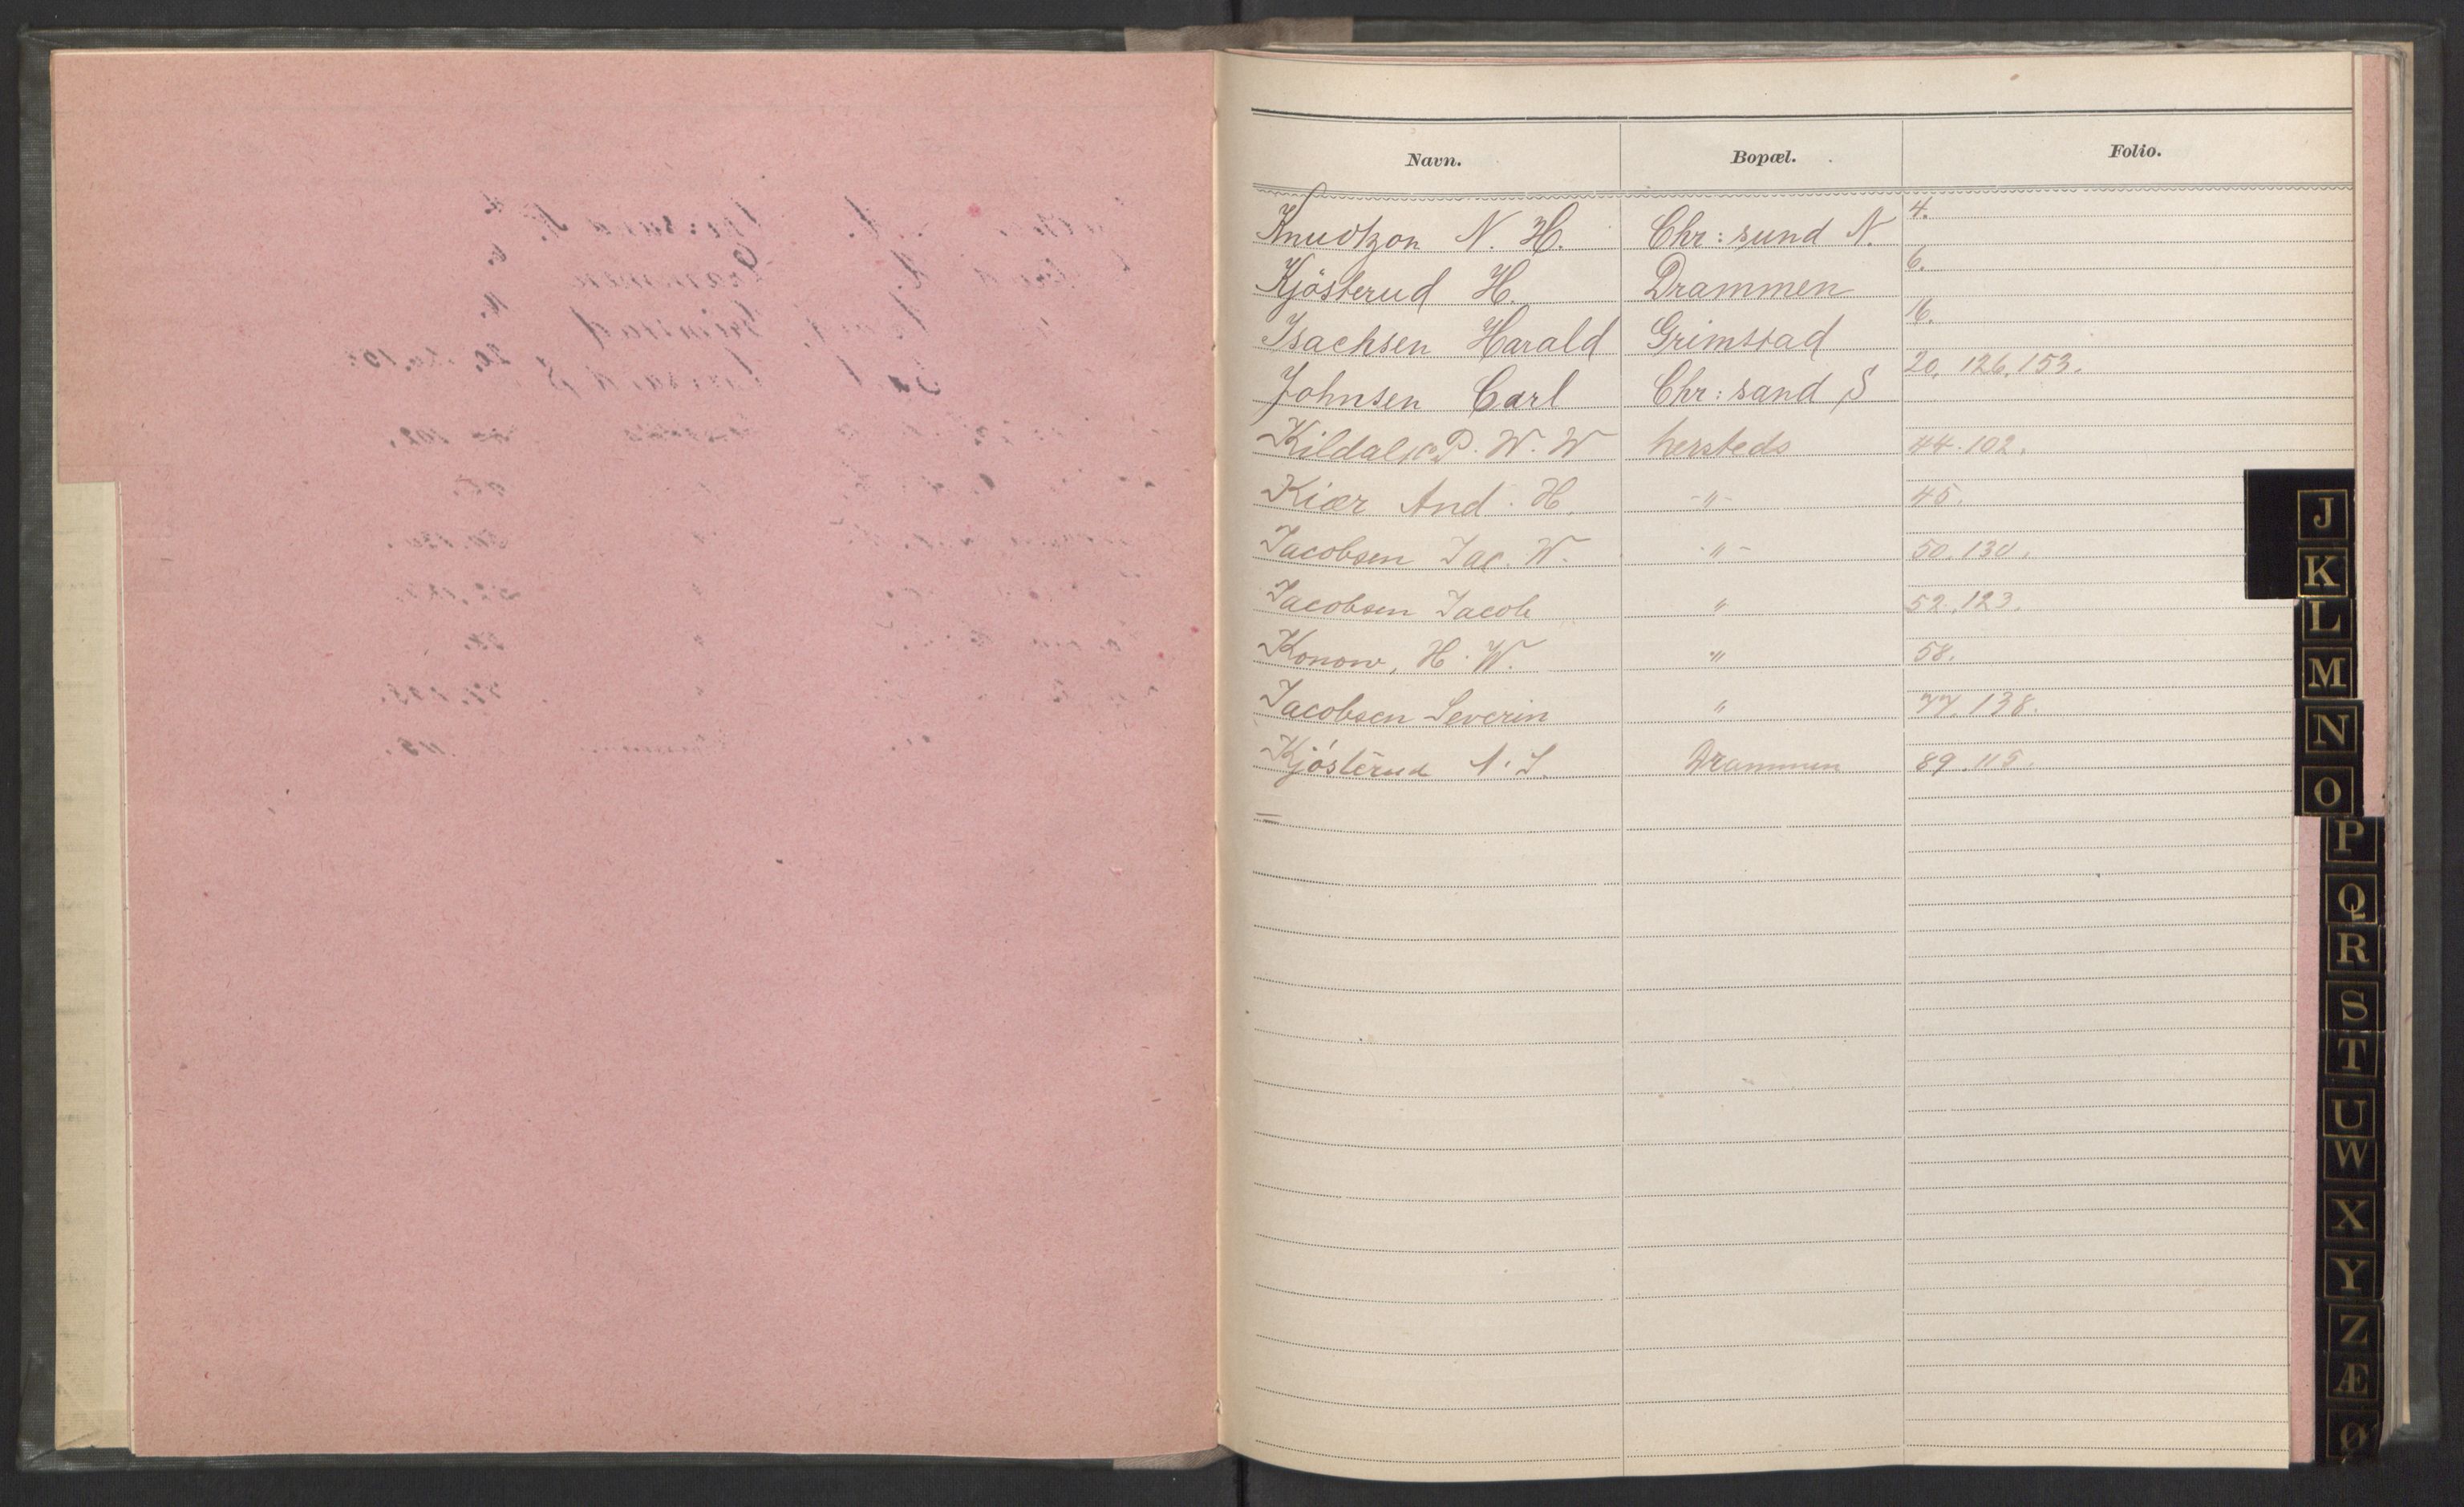 Navn. Bopæl. Folio.
Knudtzon N. H. Chr: sund N. 4.
Kjösterud H. Drammen 6.
Isachsen Harald Grimstad 16.
Johnsen Carl Chr: sand S 20, 126, 153.
Kildal, P. W. W hersteds 44. 102.
Kiær And. H. -"- 45.
Jacobsen Jac. W. -"- 50. 130.
Jacobsen Jacob " 52. 123.
Konow, H. W. " 58.
Jacobsen Severin " 77. 138.
Kjösterud A. S. Drammen 89. 115.
J
K
L
M
N
O
P
Q
R
S
T
U
W
X
Y
Z
Æ
Ø